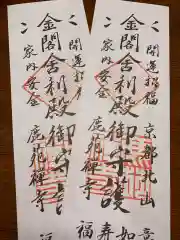 開運招福
金閣舎利殿御守護
家内安全
京都北山
鹿苑禅寺
如
寿
福
開運招福
金閣舎利殿御守護
家内安全
鹿苑禅寺
福